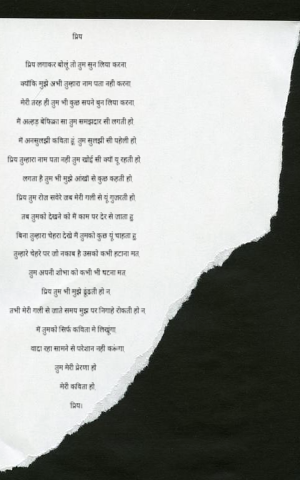 प्रिय
प्रिय लगाकर बोलूं तो तुम सुन लिया करना
क्योंकि मुझे अभी तुम्हारा नाम पता नही करना
मेरी तरह ही तुम भी कुछ सपने बुन लिया करना
मैं अल्हड़ बेफिक्रा सा तुम समझदार सी लगती हो
मैं अनसुलझी कविता हूं तुम सुलझी सी पहेली हो
प्रिय तुम्हारा नाम पता नही तुम खोई सी क्यों यूं रहती हो
लगता है तुम भी मुझे आंखों से कुछ कहती हो
प्रिय तुम रोज सवेरे जब मेरी गली से यूं गुजरती हो
तब तुमको देखने को मैं काम पर देर से जाता हूं
बिना तुम्हारा चेहरा देखे मैं तुमको कुछ यूं चाहता हूं
तुम्हारे चेहरे पर जो नकाब है उसको कभी हटाना मत
तुम अपनी शोभा को कभी भी घटना मत
प्रिय तुम भी मुझे ढूंढती हो न
तभी मेरी गली से जाते समय मुझ पर निगाहे रोकती हो न
मैं तुमको सिर्फ कविता मे लिखूंगा
वादा रहा सामने से परेशान नही करूंगा
तुम मेरी प्रेरणा हो
मेरी कविता हो
प्रिय।